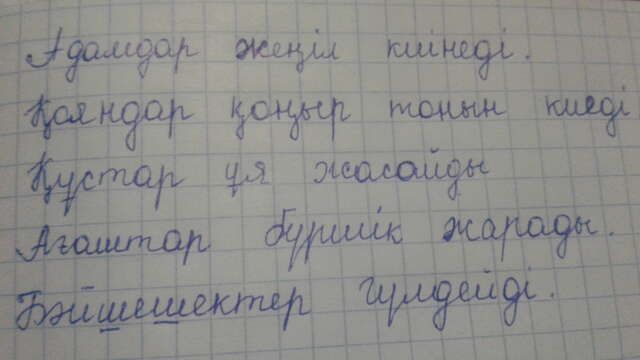 Адамдар жеңіл киінеді.
Қояндар қоңыр тонын киеді
Құстар ұя жасайды
Ағаштар бүршік жарады.
Бәйшешектер гүлдейді.